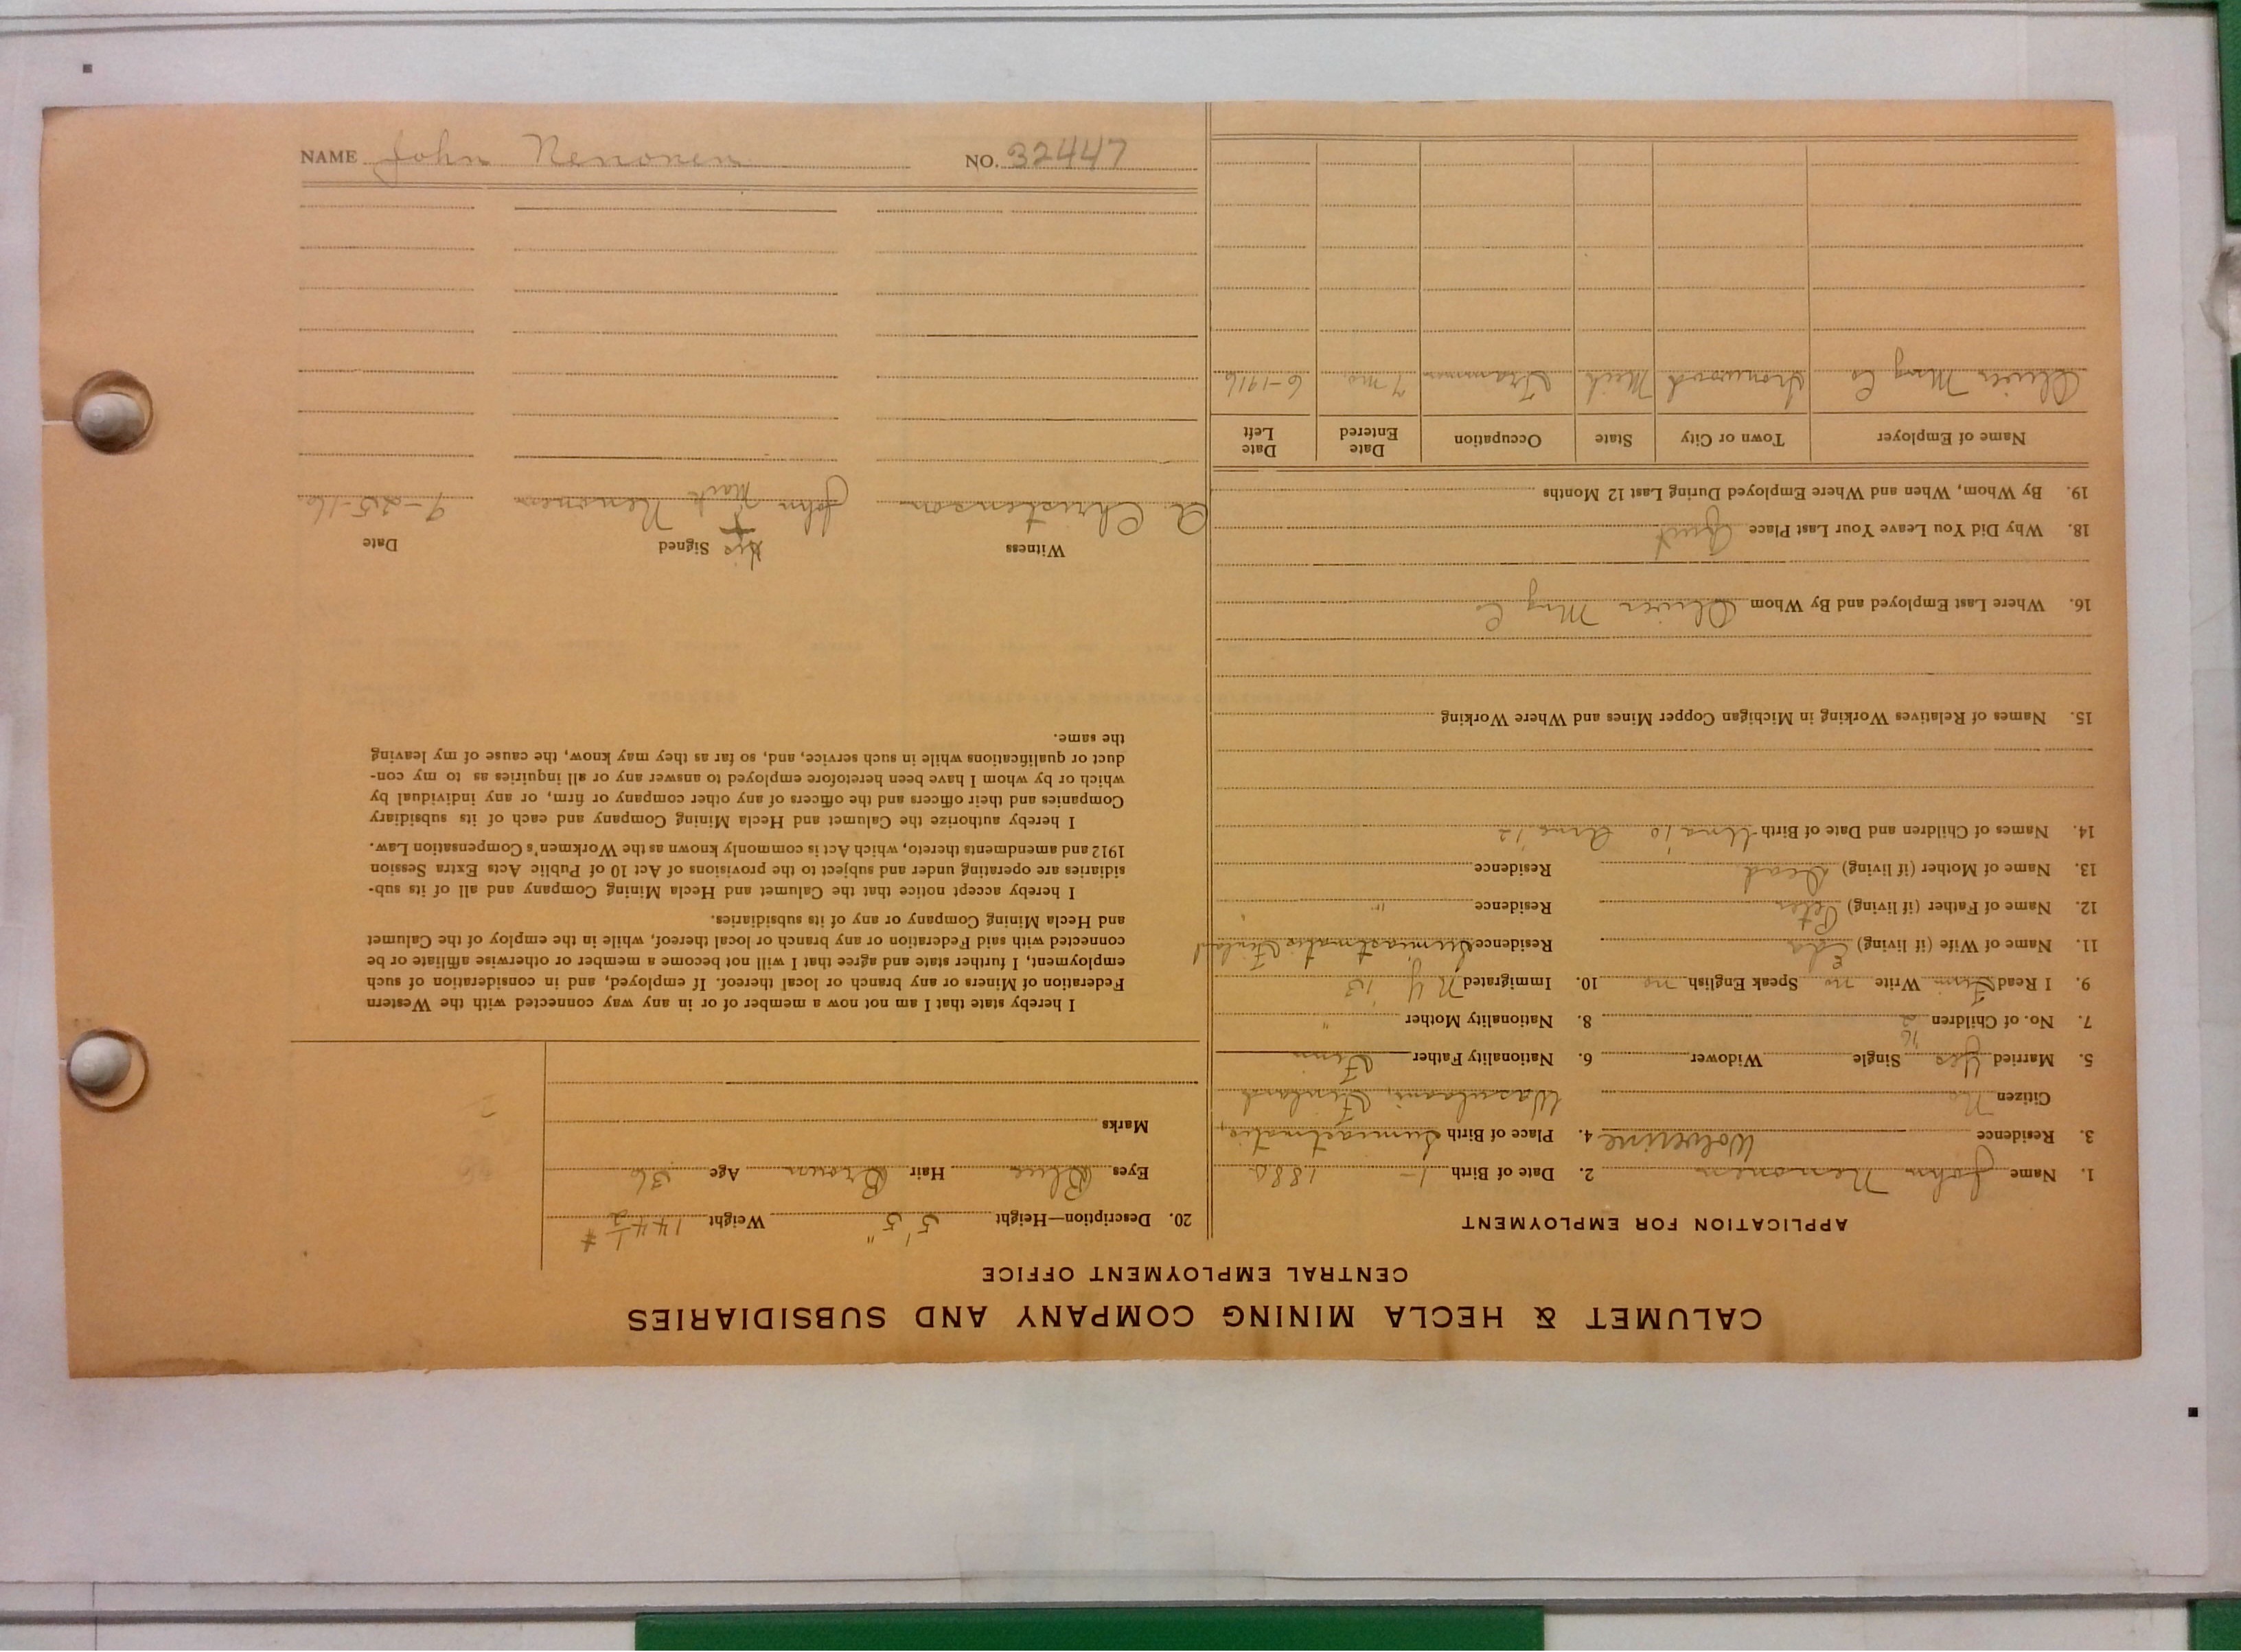 NAME John Nenonen NO. 32447
CALUMET & HECLA MINING COMPANY AND SUBSIDIARIES
CENTRAL EMPLOYMENT OFFICE
APPLICATION FOR EMPLOYMENT
1. Name John Nenonen 2. Date of Birth 1- 1880
3. Residence Wolverine 4. Place of Birth
Citizen No Finland
5. Married Yes '16 Single Widower 6. Nationality Father Finn
7. No. of Children 2 8. Nationality Mother "
9. I Read Finn Write no Speak English no 10. Immigrated N Y
11. Name of Wife (if living) Eda Residence Finland
12. Name of Father (if living) Peter Residence "
13. Name of Mother (if living) Dead Residence
14. Names of Children and Date of Birth '10 '12
15. Names of Relatives Working in Michigan Copper Mines and Where Working
16. Where Last Employed and By Whom Oliver Mng Co
18. Why Did You Leave Your Last Place Quit
19. By Whom, When and Where Employed During Last 12 Months
Name of Employer Town or City State Occupation Date Entered Date Left
Oliver Mng Co Ironwood Mich Trammer 7 mo. 6-1916
20. Description—Height 5' 5" Weight 144 1/2 #
Eyes Blue Hair Brown Age 36
Marks
I hereby state that I am not now a member of or in any way connected with the Western
Federation of Miners or any branch or local thereof. If employed, and in consideration of such
employment, I further state and agree that I will not become a member or otherwise affiliate or be
connected with said Federation or any branch or local thereof, while in the employ of the Calumet
and Hecla Mining Company or any of its subsidiaries.
I hereby accept notice that the Calumet and Hecla Mining Company and all of its sub-
sidiaries are operating under and subject to the provisions of Act 10 of Public Acts Extra Session
1912 and amendments thereto, which Act is commonly known as the Workmen's Compensation Law.
I hereby authorize the Calumet and Hecla Mining Company and each of its subsidiary
Companies and their officers and the officers of any other company or firm, or any individual by
which or by whom I have been heretofore employed to answer any or all inquiries as to my con-
duct or qualifications while in such service, and, so far as they may know, the cause of my leaving
the same.
Witness Signed Date
His
A. Christenson John X Nenonen 9-25-16
Mark